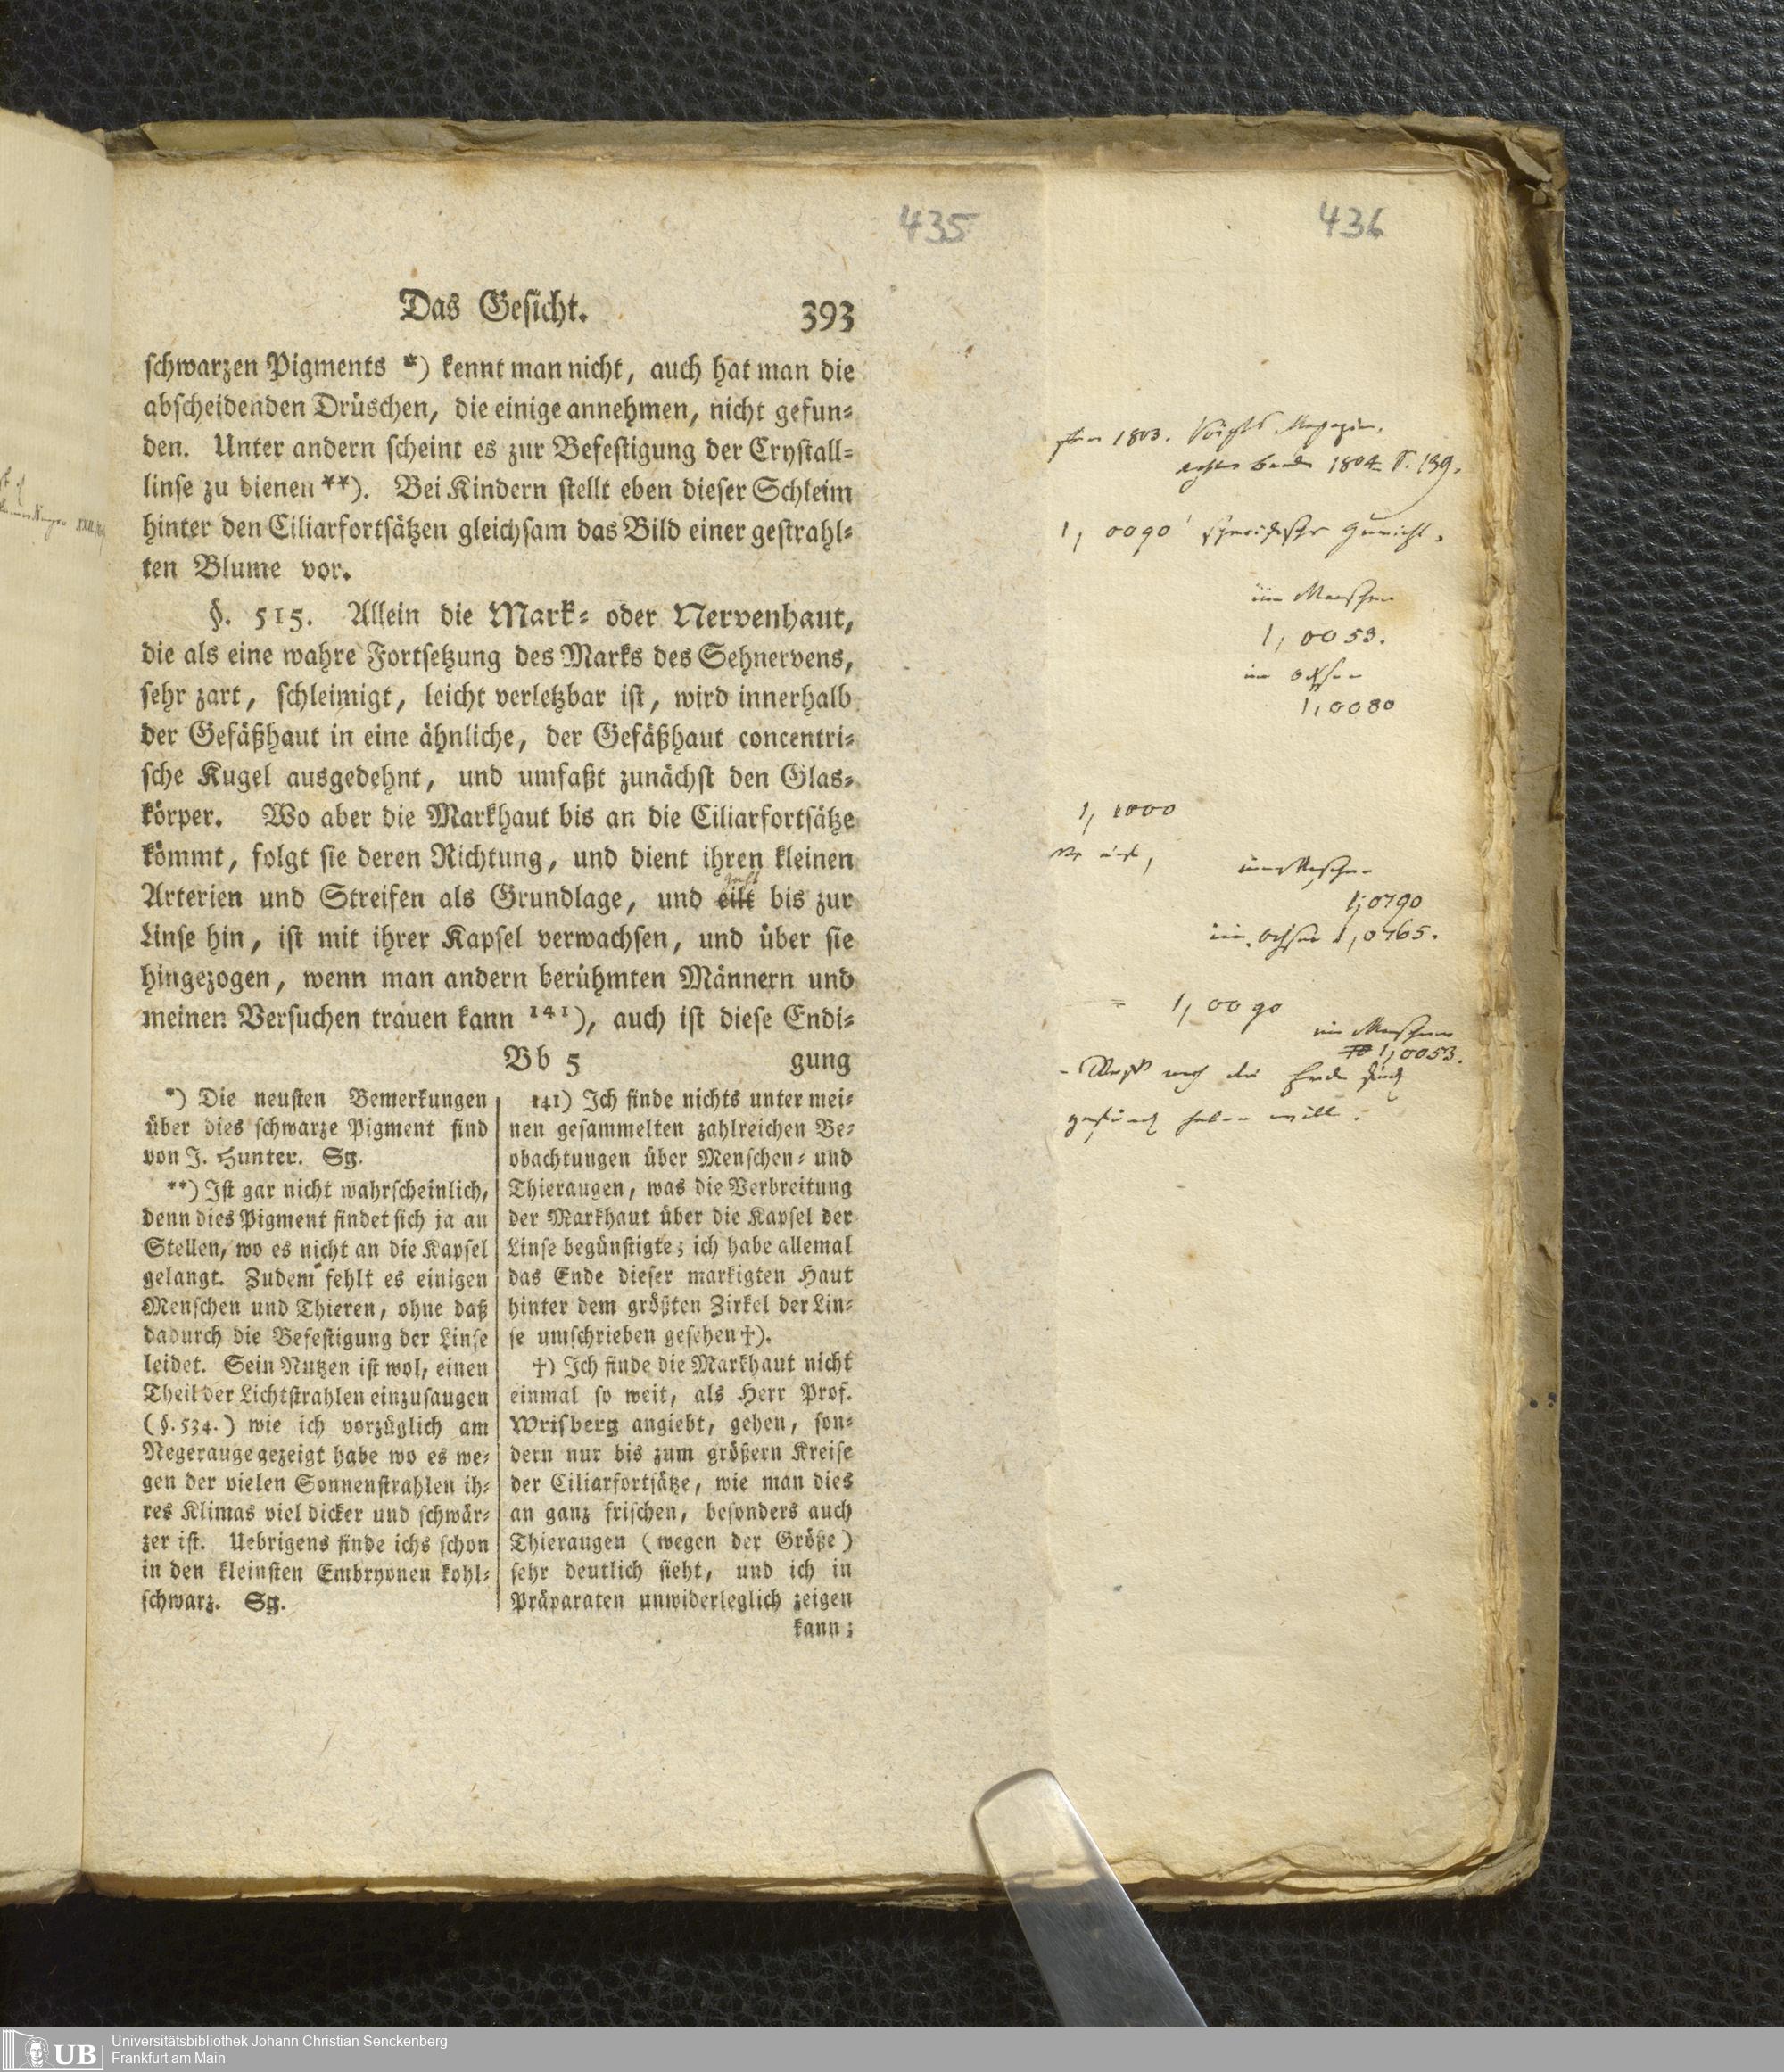 435
436
Das Gesicht. 393
ſchwarzen Pigments *) kennt man nicht, auch hat man die
abſcheidenden Drüschen, die einige annehmen, nicht gefun⸗
den. Unter andern ſcheint es zur Befeſtigung der Cryſtall⸗
linſe zu dienen **). Bei Kindern ſtellt eben dieſer Schleim
hinter den Ciliarfortſätzen gleichſam das Bild einer geſtrahl⸗
ten Blume vor.
§. 515. Allein die Mark⸗ oder Nervenhaut,
die als eine wahre Fortſetzung des Marks des Sehnervens,
ſehr zart, ſchleimigt, leicht verletzbar iſt, wird innerhalb
der Gefäßhaut in eine ähnliche, der Gefäßhaut concentri⸗
ſche Kugel ausgedehnt, und umfaßt zunächſt den Glas⸗
körper. Wo aber die Markhaut bis an die Ciliarfortſätze
kömmt, folgt ſie deren Richtung, und dient ihren kleinen
Arterien und Streifen als Grundlage, und eilt bis zur
Linſe hin, iſt mit ihrer Kapſel verwachſen, und über ſie
hingezogen, wenn man andern berühmten Männern und
meinen Verſuchen trauen kann 141), auch iſt dieſe Endi⸗
Bb 5 gung
*) Die neuſten Bemerkungen
über dies ſchwarze Pigment ſind
von J. Hunter. Sg.
**) Iſt gar nicht wahrſcheinlich,
denn dies Pigment findet ſich ja an
Stellen, wo es nicht an die Kapſel
gelangt. Zudem fehlt es einigen
Menſchen und Thieren, ohne daß
dadurch die Befeſtigung der Linſe
leidet. Sein Nutzen iſt wol, einen
Theil der Lichtſtrahlen einzuſaugen
(§. 534.) wie ich vorzüglich am
Negerauge gezeigt habe wo es we⸗
gen der vielen Sonnenſtrahlen ih⸗
res Klimas viel dicker und ſchwär⸗
zer iſt. Uebrigens finde ichs ſchon
in den kleinſten Embryonen kohl⸗
ſchwarz. Sg.
141) Ich finde nichts unter mei⸗
nen geſammelten zahlreichen Be⸗
obachtungen über Menſchen⸗ und
Thieraugen, was die Verbreitung
der Markhaut über die Kapſel der
Linſe begünſtigte; ich habe allemal
das Ende dieſer markigten Haut
hinter dem größten Zirkel der Lin⸗
ſe umſchrieben geſehen †).
†) Ich finde die Markhaut nicht
einmal ſo weit, als Herr Prof.
Wrisberg angiebt, gehen, ſon⸗
dern nur bis zum größern Kreiſe
der Ciliarfortſätze, wie man dies
an ganz friſchen, beſonders auch
Thieraugen (wegen der Größe)
ſehr deutlich ſieht, und ich in
Präparaten unwiderleglich zeigen
kann;
1803. Voigts Magazin,
1804 S. 139.
1,0090 specifische Gewicht.
im Menschen
1,0053.
im Ochsen
1,0080
1,1000
im Menschen
1,0790
im Ochsen 1,0765.
= 1,0090
im Menschen
1,0053.
UB Universitätsbibliothek Johann Christian Senckenberg
Frankfurt am Main